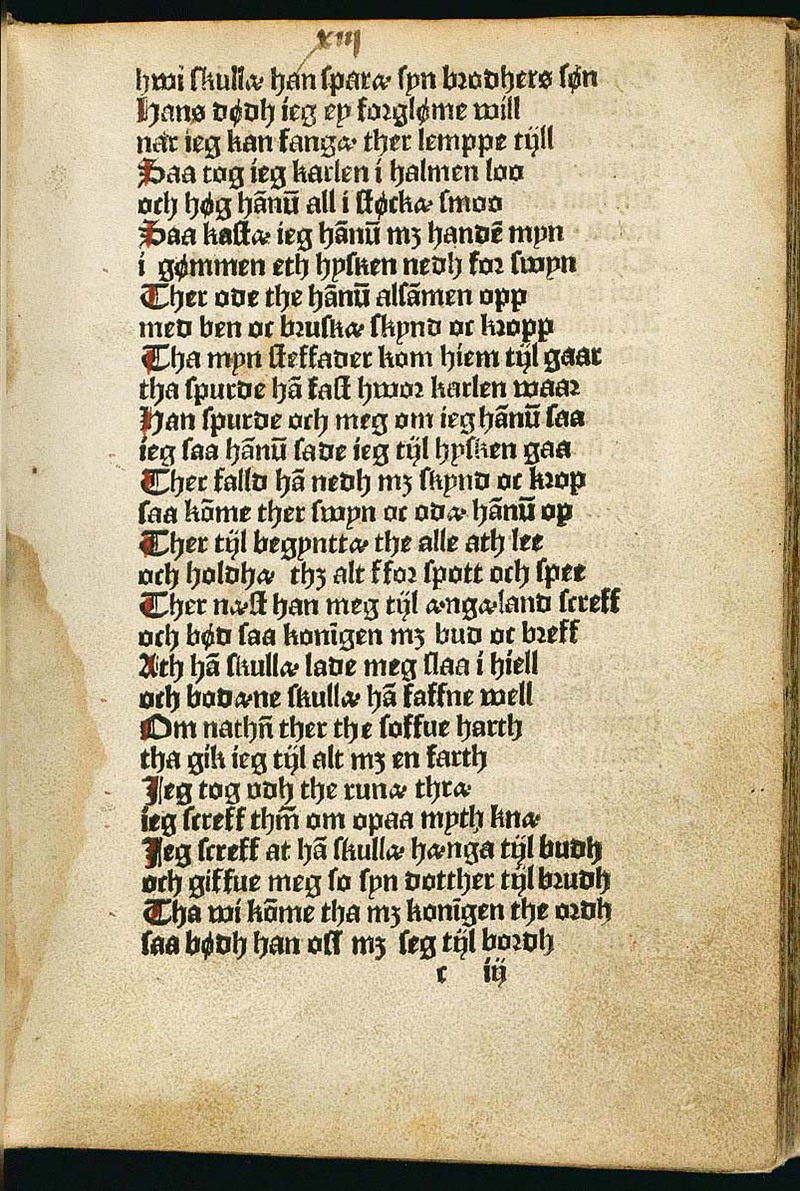 xiij
hwi skullæ han sparæ syn brodhers søn
Hans dødh ieg ey forgløme will
nar ieg kan fangæ ther lemppe tijll
Saa tog ieg karlen i halmen loo
och høg hānū all i støckæ smoo
Saa kastæ ieg hānū mꝫ handē myn
i gømmen eth hysken nedh for swyn
Ther ode the hānū alsāmen opp
med ben oc bruskæ skynd oc kropp
Tha myn steffader kom hiem tijl gaar
tha spurde hā fast hwor karlen waar
Han spurde och meg om ieg hānū saa
ieg saa hānū sade ieg tijl hysken gaa
Ther falld hā nedh mꝫ skynd oc krop
saa kōme ther swyn oc odæ hānū op
Ther tijl begynttæ the alle ath lee
och holdhæ thꝫ alt ffor spott och spee
Ther næst han meg tijl ængæland screff
och bød saa konīgen mꝫ bud oc breff
Ath hā skullæ lade meg slaa i hiell
och bodæne skullæ hā faffne well
Om nathn̄ ther the soffue harth
tha gik ieg tijl alt mꝫ en farth
Jeg tog odh the runæ thræ
ieg screff thm̄ om opaa myth knæ
Jeg screff at hā skullæ hænga tijl budh
och giffue meg so syn dotther tijl brudh
Tha wi kōme tha mꝫ konīgen the ordh
saa bødh han oss mꝫ seg tijl bordh
c iij